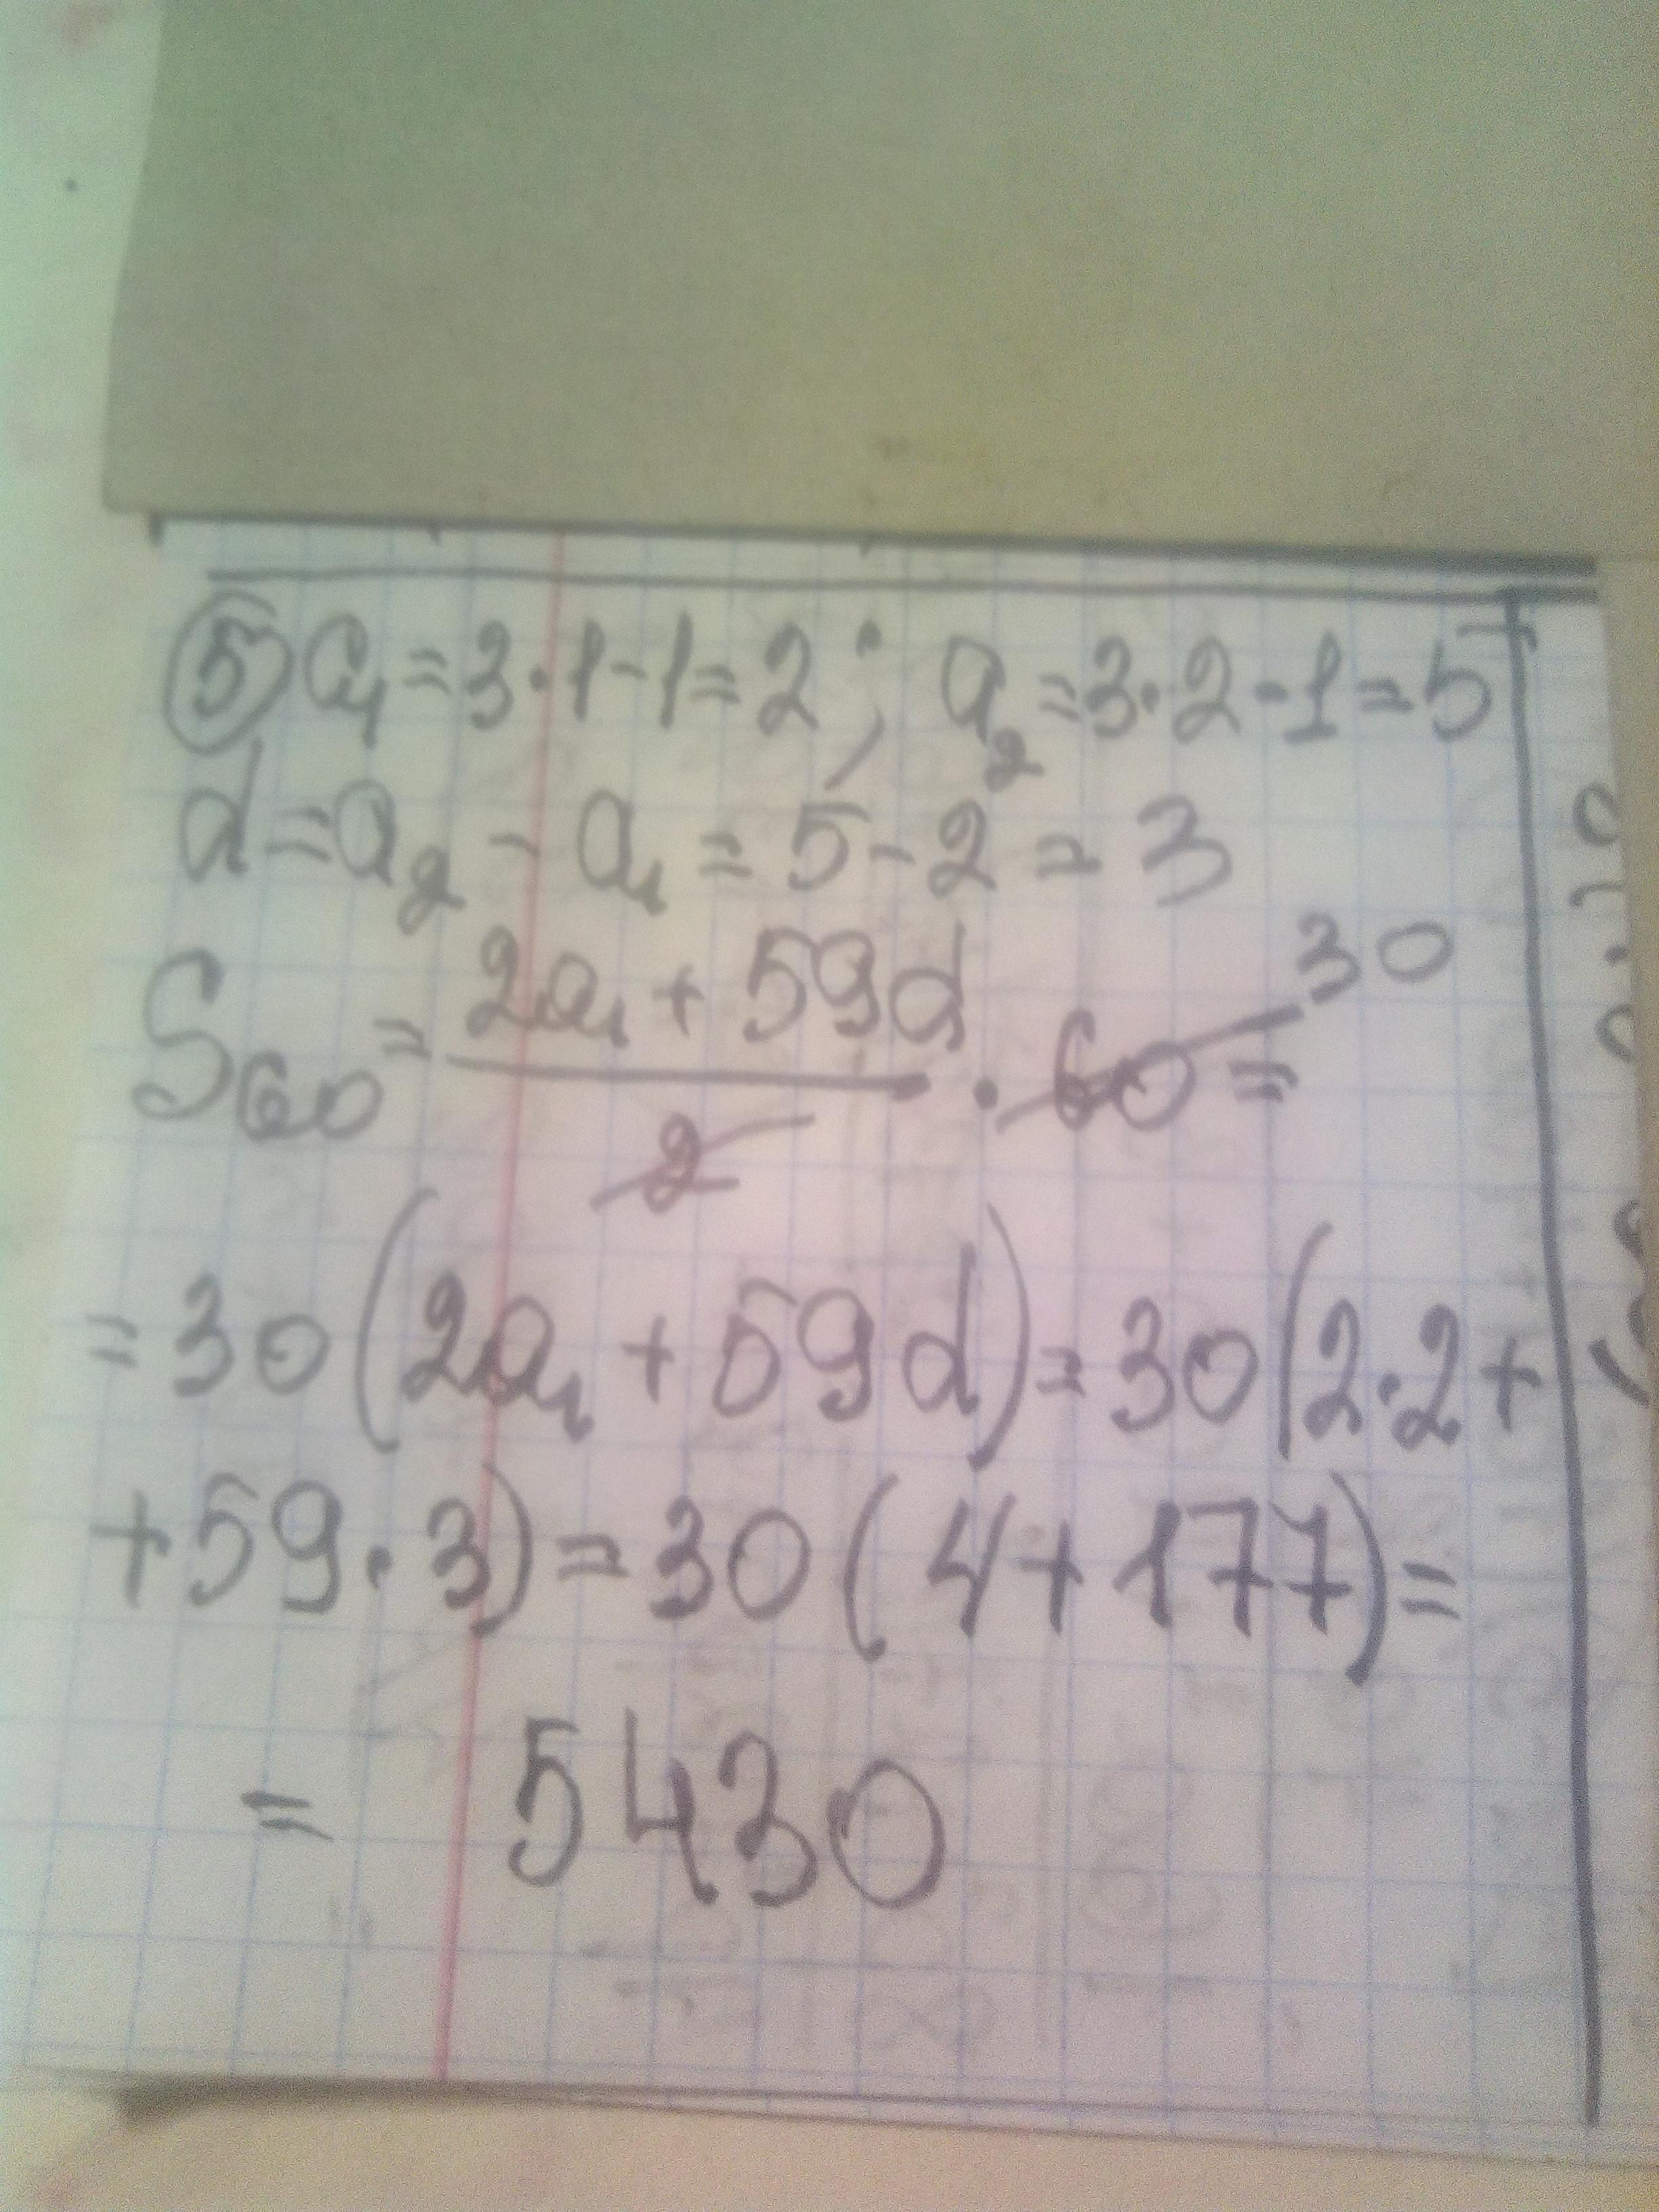 ⑤ a₁=3·1-1=2; a₂=3·2-1=5
d=a₂-a₁=5-2=3
S₆₀=(2a₁+59d)/2·60=30
=30(2a₁+59d)=30(2·2+
+59·3)=30(4+177)=
=5430